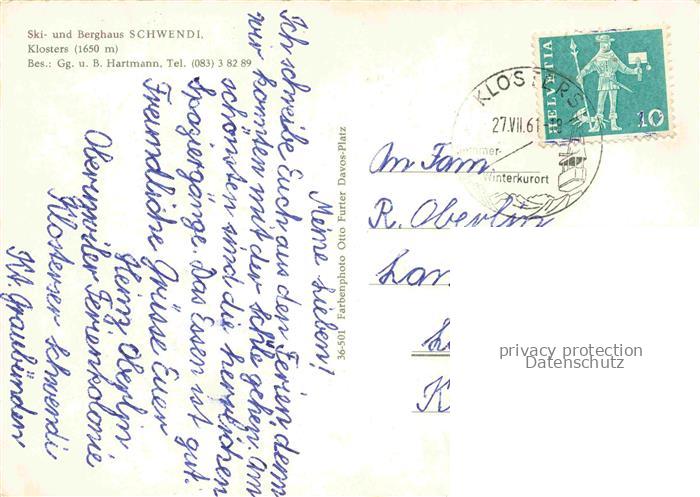 Ski- und Berghaus SCHWENDI,
Klosters (1650 m)
Bes.: Gg. u. B. Hartmann, Tel. (083) 3 82 89
Meine Lieben!
Ich schreibe Euch aus den Ferien, denn
wir konnten mit der Schule gehen. Am
schönsten sind die herrlichen
Spaziergänge. Das Essen ist gut.
Freundliche Grüsse Euer
Heinz Oberlin
Oberwiler Ferienkolonie
Klosterser Schwendi
Kt. Graubünden
36-501 Farbenphoto Otto Furter Davos-Platz
KLOSTERS
27.VII.61-18
Sommer-
Winterkurort
HELVETIA
10
An Fam.
R. Oberlin
Lan
K
privacy protection
Datenschutz